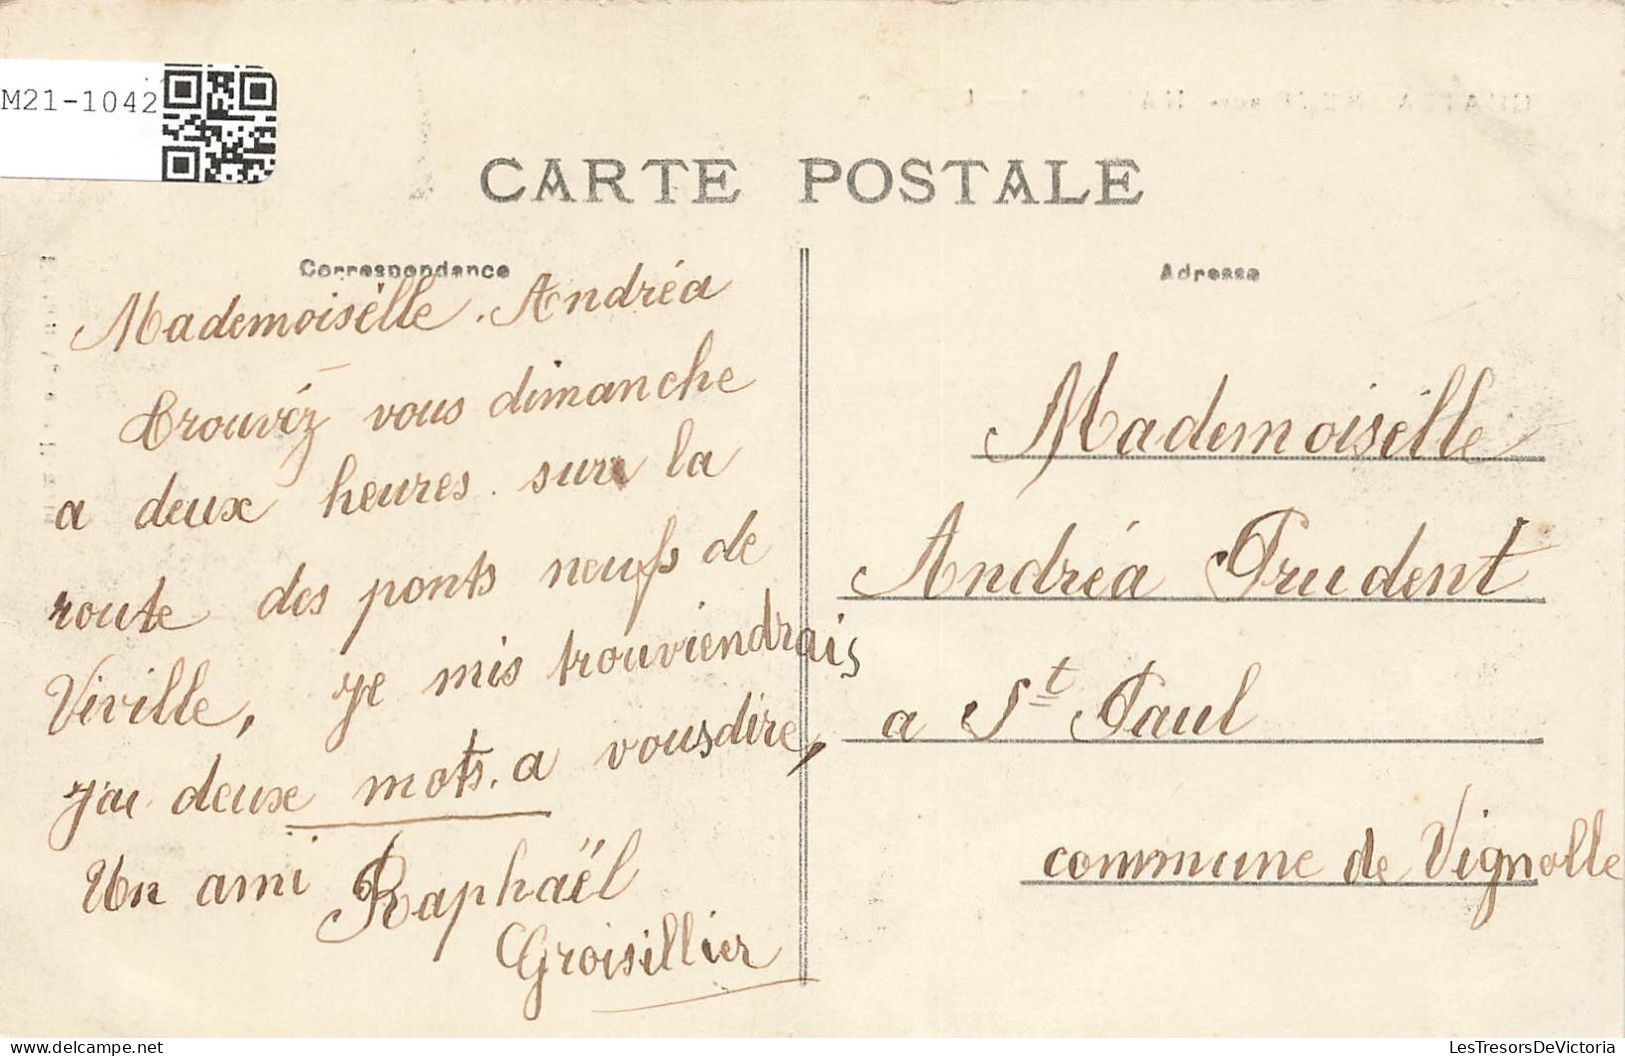 M21-1042
CARTE POSTALE
Correspondance
Mademoisèlle. Andréa
trouvéz vous dimanche
a deux heures. sur la
route des ponts neufs de
Viville, je mis trouviendrais
j'ai deuxe mots. a vous dire,
Un ami Raphaël
Groisillier
Adresse
Mademoisèlle
Andréa Prudent
a St Paul
commune de Vignolle
LesTresorsDeVictoria